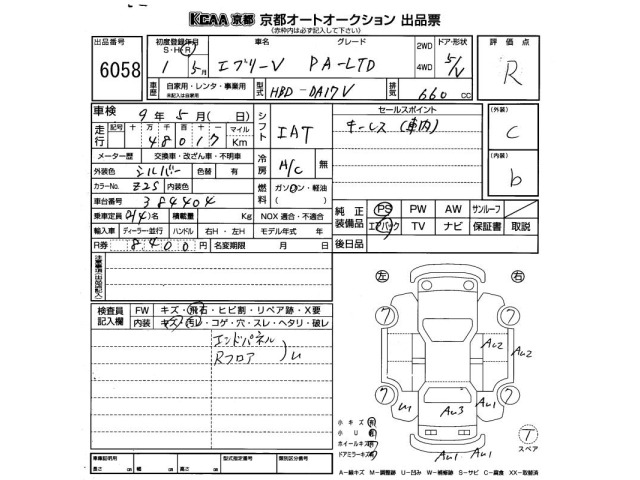 KCAA 京都 京都オートオークション 出品票
(赤枠内は必ず記入して下さい)
出品番号
6058
初度登録年月
S・H・R
1 5月
車名
エブリーV
グレード
PA-LTD
2WD
4WD
ドア・形状
5/V
評価点
R
車歴
自家用・レンタ・事業用
未記入は自家用
型式
HBD-DA17V
排気
660 cc
車検 9年 5月( 日)
シフト
IAT
走行
記号 十 万 千 百 十 一 マイル
48017 Km
メーター歴 交換車・改ざん車・不明車
外装色 シルバー 色替 有
カラーNo. Z2S 内装色
車台番号 384404
乗車定員 2/4 名 積載量 Kg
輸入車 ディーラー・並行 ハンドル 右H・左H モデル年式 年
R券 8400 円 名変期限 月 日
冷房
A/C 無
燃料
ガソリン・軽油
( )
NOX 適合・不適合
セールスポイント
キーレス(車内)
(外装)
C
(内装)
b
純正装備品
PS PW AW サンルーフ
エアバック TV ナビ 保証書 取説
後日品
注意事項(出品店記入)
検査員記入欄
FW キズ・飛石・ヒビ割・リペア跡・X要
内装 キズ・汚レ・コゲ・穴・スレ・ヘタリ・破レ
エンドパネル
Rフロア
) U
左 右
ワ ワ
ワ ワ
AU2 AU2
AU3 AU1
AU1 AU1
小キズ
小U
ホイールキズ
ドアミラーキズ
T
スペア
車体証明用 型式指定番号 類別区分番号
長さ cm 幅 cm 高さ cm
A-線キズ M-調整跡 U-凹み W-補修跡 S-サビ C-腐食 XX-取替済